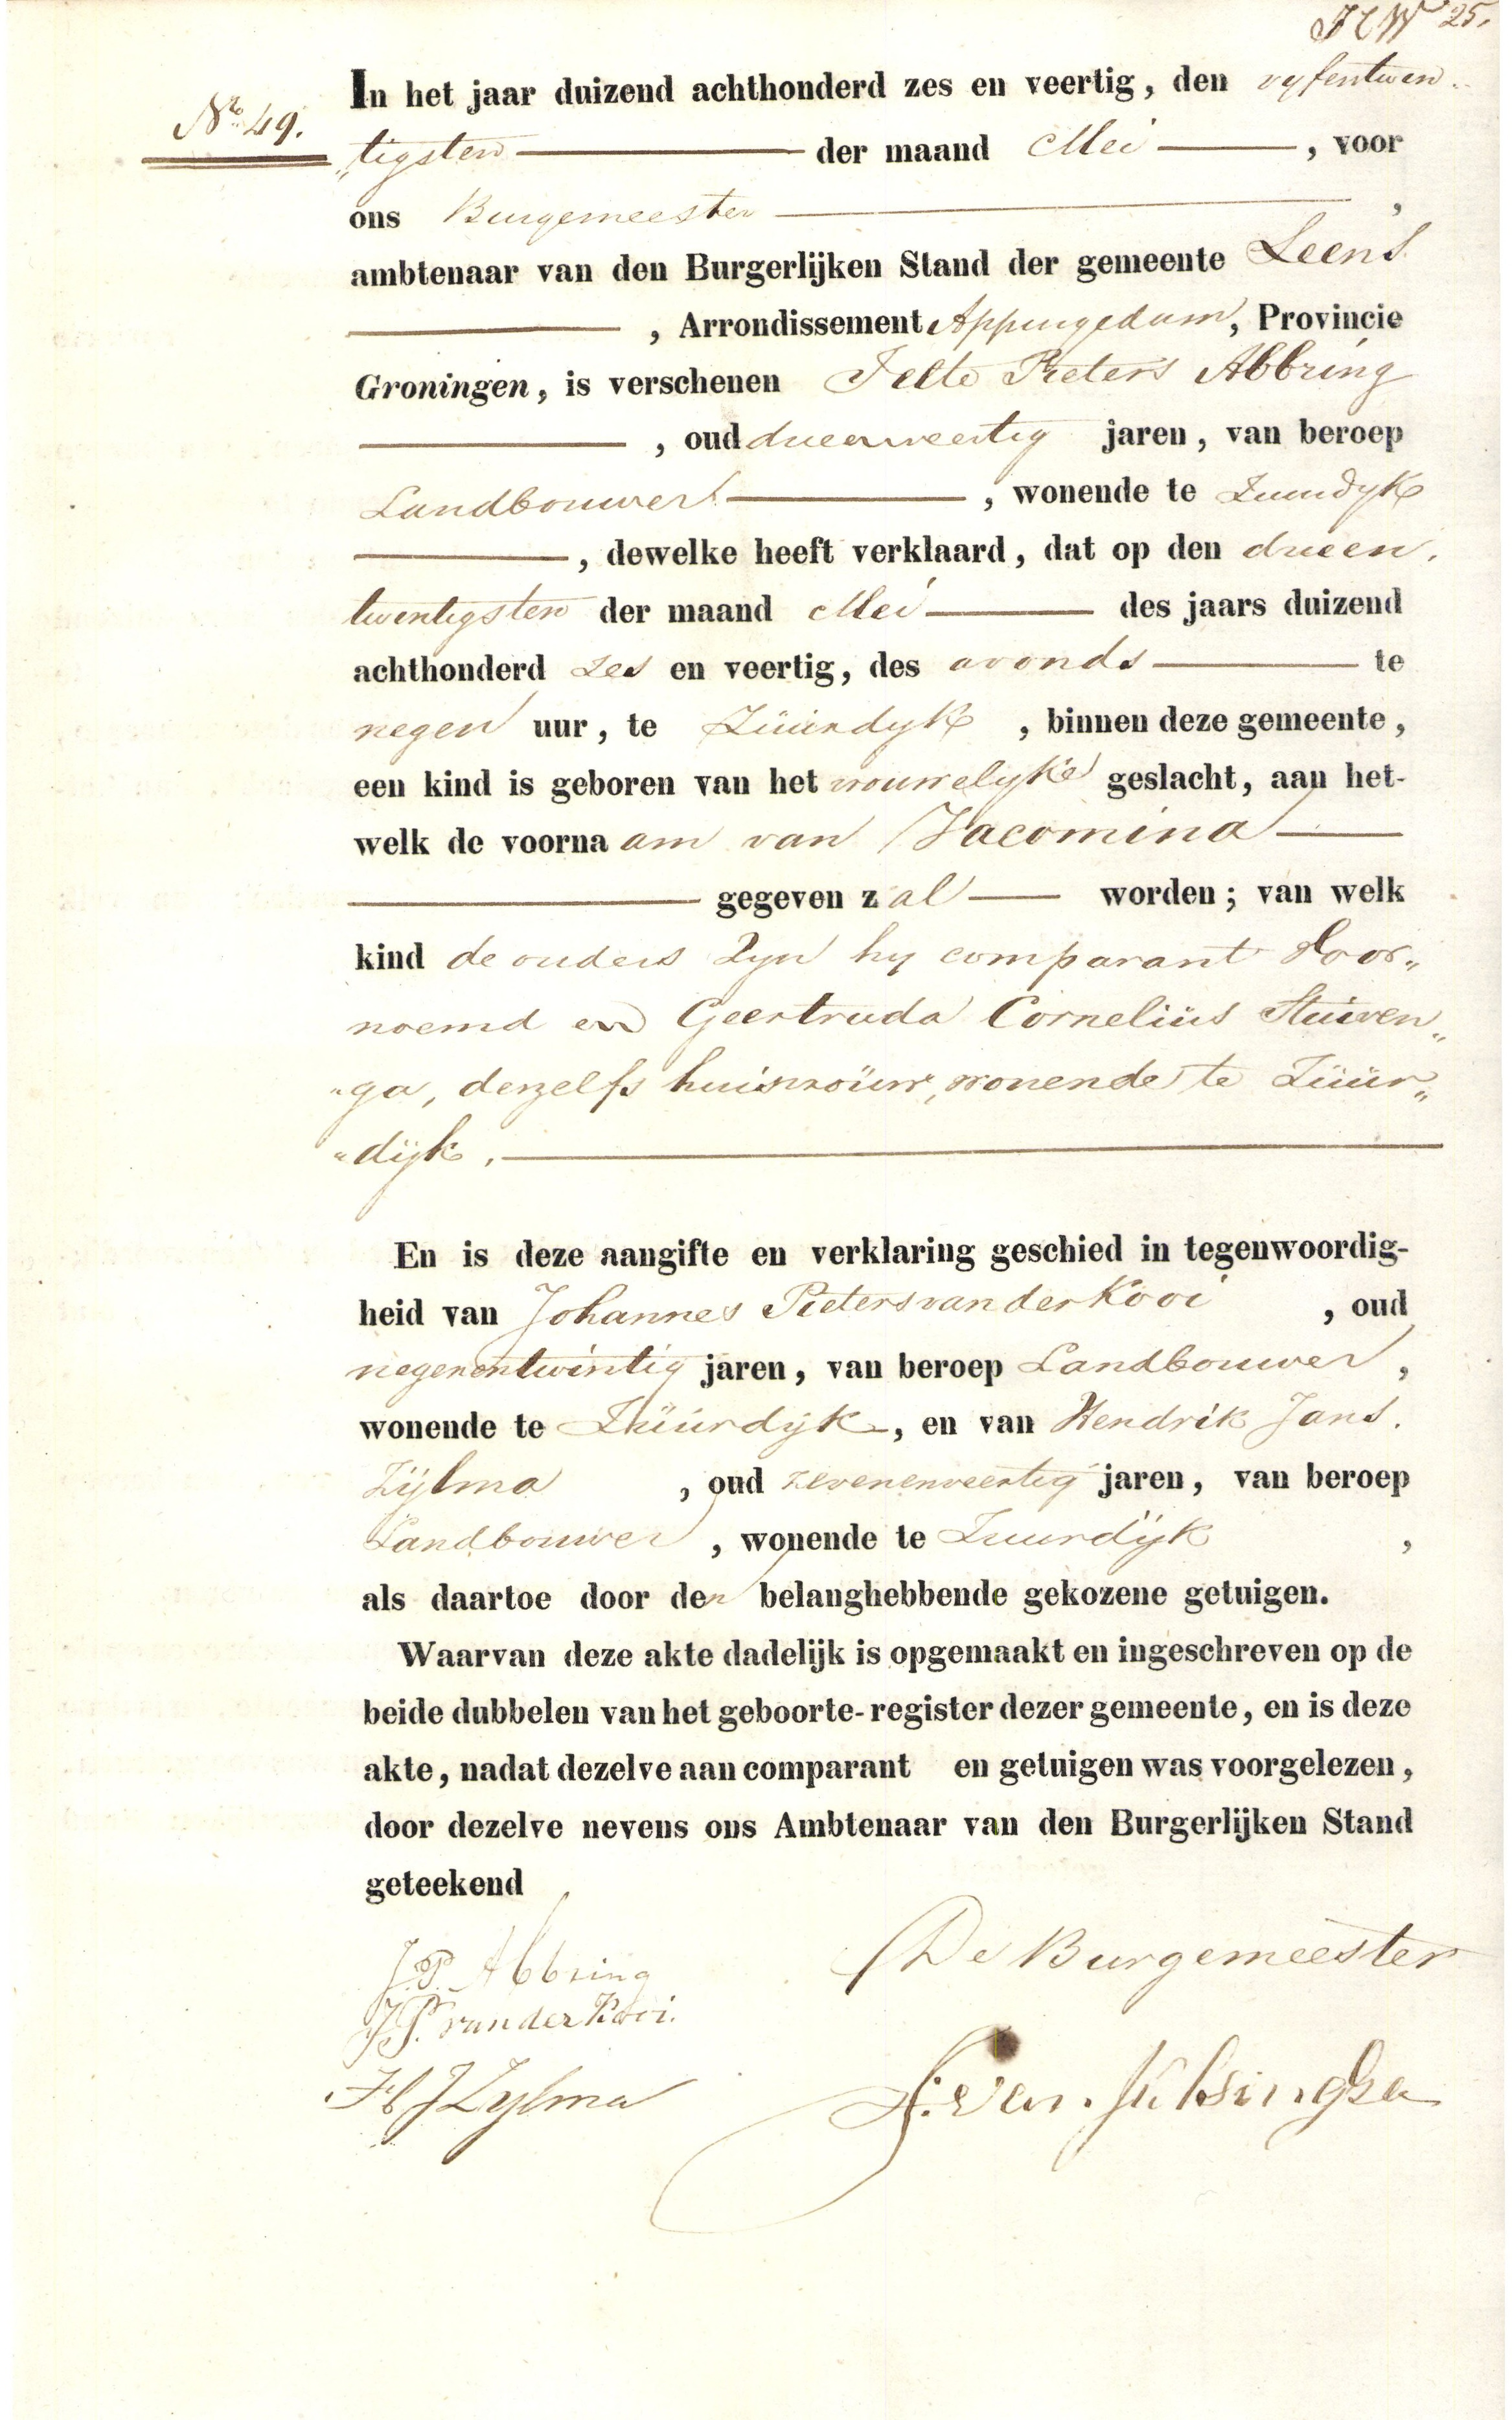 25.
No. 49.
In het jaar duizend achthonderd zes en veertig, den vyfentwen
"tigsten der maand Mei , voor
ons Burgemeester ,
ambtenaar van den Burgerlijken Stand der gemeente Leens
, Arrondissement Appingedam, Provincie
Groningen, is verschenen Jelte Pieters Abbring
, oud drieenveertig jaren, van beroep
Landbouwer , wonende te Zuurdyk
, dewelke heeft verklaard, dat op den drieen
twentigsten der maand Mei des jaars duizend
achthonderd zes en veertig, des avonds te
negen uur, te Züürdyk , binnen deze gemeente,
een kind is geboren van het vrouwelyke geslacht, aan het-
welk de voornaam van Jacomina
gegeven zal worden; van welk
kind de ouders zyn hy comparant voor„
noemd en Geertruda Corneliüs Stuiven„
"ga, deszelfs huisvroüw, wonende te Züür„
"dijk.
En is deze aangifte en verklaring geschied in tegenwoordig-
heid van Johannes Pieters van der Kooi , oud
negenentwintig jaren, van beroep Landbouwer ,
wonende te Züürdijk , en van Hendrik Jans
Zijlma , oud zevenenveertig jaren, van beroep
Landbouwer , wonende te Zuurdijk ,
als daartoe door den belanghebbende gekozene getuigen.
Waarvan deze akte dadelijk is opgemaakt en ingeschreven op de
beide dubbelen van het geboorte-register dezer gemeente, en is deze
akte, nadat dezelve aan comparant en getuigen was voorgelezen,
door dezelve nevens ons Ambtenaar van den Burgerlijken Stand
geteekend
J.P. Abbring
De Burgemeester
J.P. van der Kooi.
H J Zylma